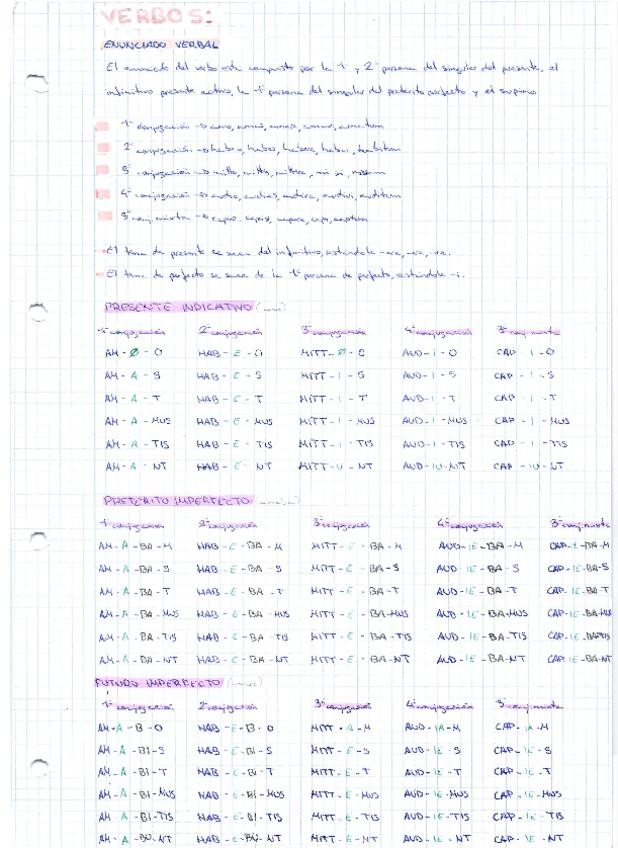 VERBOS:
ENUNCIADO VERBAL
El enunciado del verbo está compuesto por la 1ª y 2ª persona del singular del presente, el
infinitivo presente activo, la 1ª persona del singular del pretérito perfecto y el supino
1ª conjugación → amo, amas, amare, amavi, amatum
2ª conjugación → habeo, habes, habere, habui, habitum
3ª conjugación → mitto, mittis, mittere, misi, missum
4ª conjugación → audio, audis, audire, audivi, auditum
3ª conj. mixta → capio, capis, capere, cepi, captum
→ El tema de presente se saca del infinitivo, restándole -are, -ere, -ire.
→ El tema de perfecto se saca de la 1ª persona de perfecto, restándole -i.
PRESENTE INDICATIVO
1ª conjugación 2ª conjugación 3ª conjugación 4ª conjugación 3ª conj. mixta
AM - Ø - O HAB - E - O MITT - Ø - O AUD - I - O CAP - I - O
AM - A - S HAB - E - S MITT - I - S AUD - I - S CAP - I - S
AM - A - T HAB - E - T MITT - I - T AUD - I - T CAP - I - T
AM - A - MUS HAB - E - MUS MITT - I - MUS AUD - I - MUS CAP - I - MUS
AM - A - TIS HAB - E - TIS MITT - I - TIS AUD - I - TIS CAP - I - TIS
AM - A - NT HAB - E - NT MITT - U - NT AUD - IU - NT CAP - IU - NT
PRETÉRITO IMPERFECTO
1ª conjugación 2ª conjugación 3ª conjugación 4ª conjugación 3ª conj. mixta
AM - A - BA - M HAB - E - BA - M MITT - E - BA - M AUD - IE - BA - M CAP - IE - BA - M
AM - A - BA - S HAB - E - BA - S MITT - E - BA - S AUD - IE - BA - S CAP - IE - BA - S
AM - A - BA - T HAB - E - BA - T MITT - E - BA - T AUD - IE - BA - T CAP - IE - BA - T
AM - A - BA - MUS HAB - E - BA - MUS MITT - E - BA - MUS AUD - IE - BA - MUS CAP - IE - BA - MUS
AM - A - BA - TIS HAB - E - BA - TIS MITT - E - BA - TIS AUD - IE - BA - TIS CAP - IE - BA - TIS
AM - A - BA - NT HAB - E - BA - NT MITT - E - BA - NT AUD - IE - BA - NT CAP - IE - BA - NT
FUTURO IMPERFECTO
1ª conjugación 2ª conjugación 3ª conjugación 4ª conjugación 3ª conj. mixta
AM - A - B - O HAB - E - B - O MITT - A - M AUD - IA - M CAP - IA - M
AM - A - BI - S HAB - E - BI - S MITT - E - S AUD - IE - S CAP - IE - S
AM - A - BI - T HAB - E - BI - T MITT - E - T AUD - IE - T CAP - IE - T
AM - A - BI - MUS HAB - E - BI - MUS MITT - E - MUS AUD - IE - MUS CAP - IE - MUS
AM - A - BI - TIS HAB - E - BI - TIS MITT - E - TIS AUD - IE - TIS CAP - IE - TIS
AM - A - BU - NT HAB - E - BU - NT MITT - E - NT AUD - IE - NT CAP - IE - NT